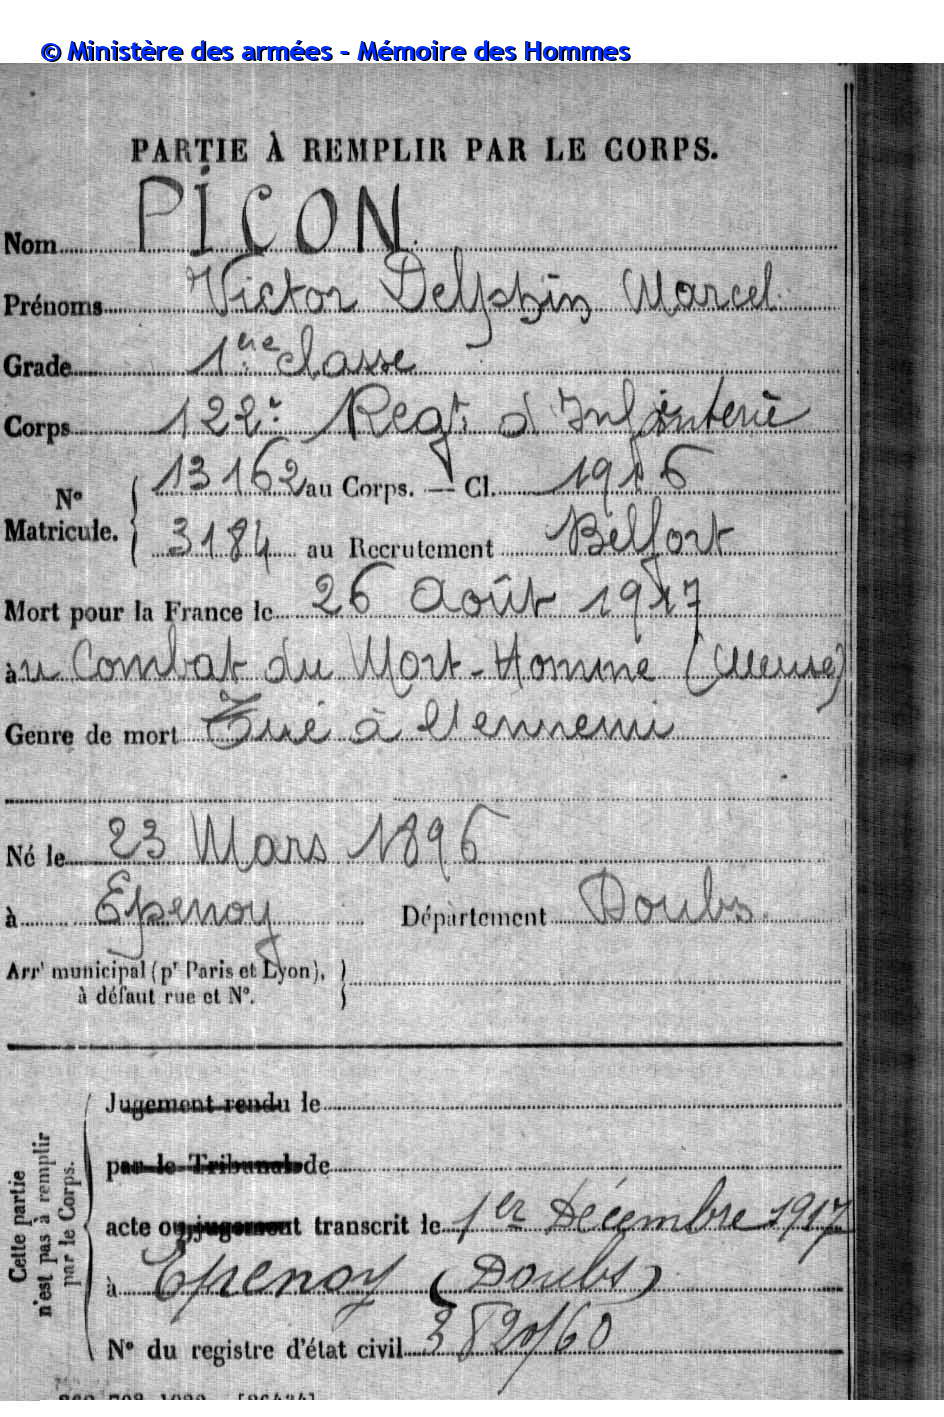 © Ministère des armées - Mémoire des Hommes
PARTIE À REMPLIR PAR LE CORPS.
Nom PICON
Prénoms Victor Delphin Marcel
Grade 1ère classe
Corps 122e Regt d'Infanterie
N° Matricule. 13162 au Corps. — Cl. 1916
3184 au Recrutement Belfort
Mort pour la France le 26 Août 1917
àu Combat du Mort-Homme (Meuse)
Genre de mort Tué à l'ennemi
Né le 23 Mars 1896
à Epenoy Département Doubs
Arrt municipal (pr Paris et Lyon),
à défaut rue et N°.
Cette partie
n'est pas à remplir
par le Corps.
Jugement rendu le
par le Tribunal de
acte ou jugement transcrit le 1er Décembre 1917
à Epenoy (Doubs)
N° du registre d'état civil